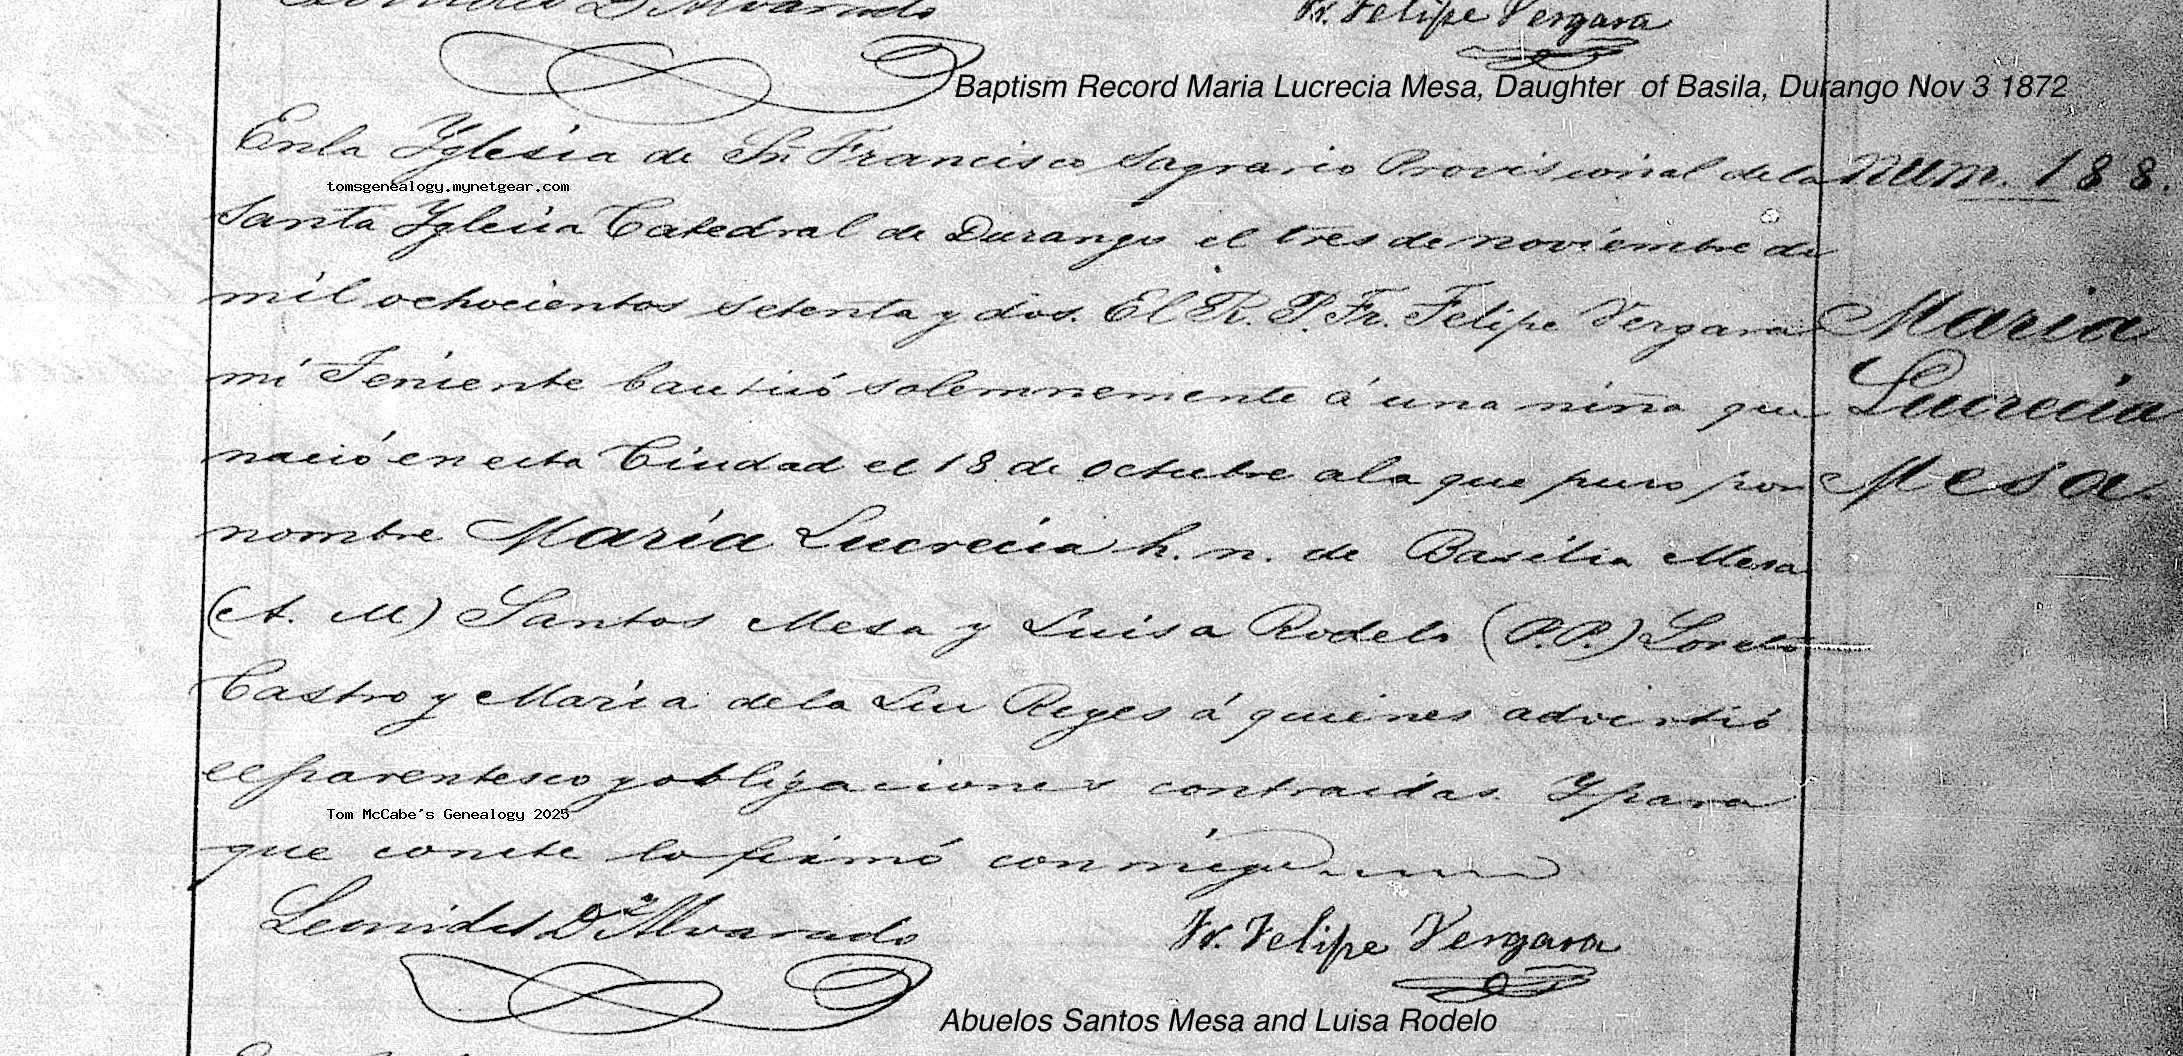 Fr. Felipe Vergara
Baptism Record Maria Lucrecia Mesa, Daughter of Basila, Durango Nov 3 1872
En la Yglesia de Sn Francisco Sagrario Provisional de la
Num. 188.
tomsgenealogy.mynetgear.com
Santa Yglesia Catedral de Durango el tres de noviembre de
mil ochocientos setenta y dos. El R. P. Fr. Felipe Vergara
Maria
mi Teniente bautisó solemnemente á una niña que
Lucrecia
nació en esta Ciudad el 18 de octubre a la que puso por
Mesa.
nombre Maria Lucrecia h. n. de Basilia Mesa
(A. M) Santos Mesa y Luisa Rodelo (P.P.) Loreto
Castro y Maria de la Luz Reyes á quienes advirtió
el parentesco y obligaciones contraidas. Y para
Tom McCabe's Genealogy 2025
que conste lo firmó conmigo
Leonides D. Alvarado
Fr. Felipe Vergara
Abuelos Santos Mesa and Luisa Rodelo